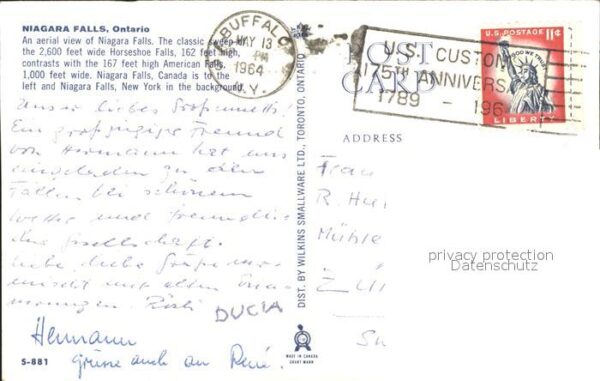 NIAGARA FALLS, Ontario
An aerial view of Niagara Falls. The classic sweep of
the 2,600 feet wide Horseshoe Falls, 162 feet high,
contrasts with the 167 feet high American Falls,
1,000 feet wide. Niagara Falls, Canada is to the
left and Niagara Falls, New York in the background.
BUFFALO
MAY 13
PM
1964
N.Y.
POST
CARD
U.S. CUSTOMS
175TH ANNIVERSARY
1789 - 196
U.S. POSTAGE 11¢
IN GOD WE TRUST
LIBERTY
Unser liebes Großmuetti!
Ein großzügiger Freund
von Hermann hat uns
eingeladen zu den
Fällen bei schönem
Wetter und freundli-
cher Gesellschaft.
Liebe, liebe Grüße
und
Hermann
Grüsse auch an René.
DUCIA
DIST. BY WILKINS SMALLWARE LTD., TORONTO, ONTARIO
ADDRESS
Frau
R. Hu
Mühle
privacy protection
Datenschutz
ZÜ
MADE IN CANADA
S-881